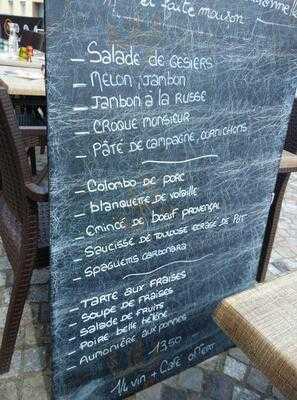 et faite maison
- Salade de GESIERS
- MELON, JAMBON
- JAMBON À LA RUSSE
- CROQUE MONSIEUR
- PÂTÉ DE CAMPAGNE, CORNICHONS
- COLOMBO DE PORC
- blanquette DE VOLAILLE
- EMINCÉ DE bOEUF PROVENÇAL
- SAUCISSE DE TOULOUSE ECRASÉ DE PDT
- SPAGUETTIS CARBONARA
- TARTE AUX FRAISES
- SOUPE DE FRAISES
- SALADE DE FRUITS
- POIRE BELLE HÉLÈNE
- AUMONIÈRE AUX POMMES
13€50
1/4 VIN + CAFÉ OFFERT